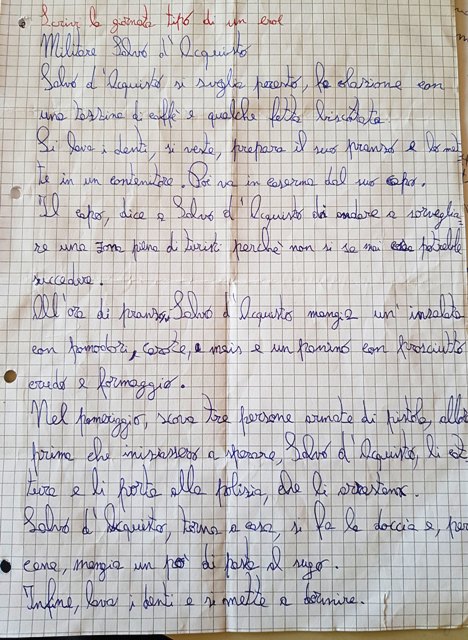 Scrivi la giornata tipo di un eroe
Militare Salvo d'Acquisto
Salvo d'Acquisto si sveglia presto, fa colazione con
una tazzina di caffè e qualche fetta biscottata.
Si lava i denti, si veste, prepara il suo pranzo e lo met-
te in un contenitore. Poi va in caserma dal suo capo.
Il capo, dice a Salvo d'Acquisto di andare a sorveglia-
re una zona piena di turisti perché non si sa mai cosa potrebbe
succedere.
All'ora di pranzo, Salvo d'Acquisto mangia un'insalata
con pomodori, carote, e mais e un panino con prosciutto
crudo e formaggio.
Nel pomeriggio, scova tre persone armate di pistola, allora
prima che iniziassero a sparare, Salvo d'Acquisto, li cat-
tura e li porta alla polizia, che li arrestano.
Salvo d'Acquisto, torna a casa, si fa la doccia e, per
cena, mangia un po' di pasta al sugo.
Infine, lava i denti e si mette a dormire.